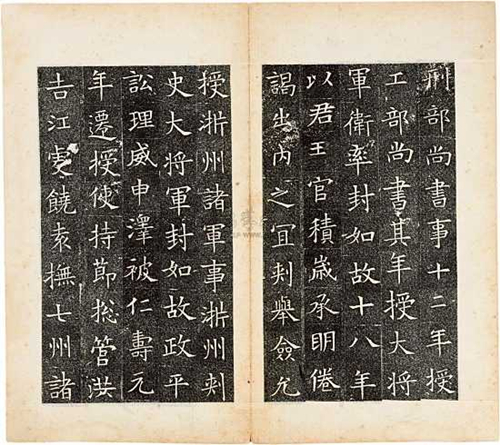 刑部尚書事十二年授
工部尚書其年授大將
軍衛率封如故十八年
以君王官積歲承明倦
謁出內之宜刾舉僉允
授淅州諸軍事淅州刾
史大將軍封如故政平
訟理威申澤被仁壽元
年遷授使持節揔管洪
吉江虔饒袁撫七州諸